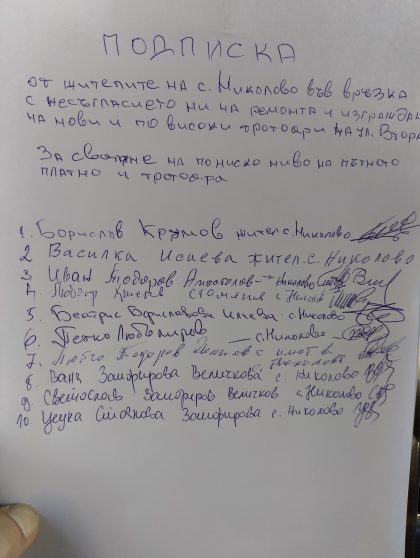 ПОДПИСКА
от жителите на с. Николово във връзка
с несъгласието ни на ремонта и изграждан
на нови и по високи тротоари на ул. Втора
За сваляне на по ниско ниво на пътното
платно и тротоара
1. Борислав Крумов жител с. Николово
2 Василка Исаева жител. с. Николово
3. Иван Тодоров Апостолов Николово
4. Любчо
5. Беатрис Бориславова Илиева. с. Николово
6. Петко Любомиров с. Николово
7. Любчо Тодоров имот в. Николово
8. Ваня Замфирова Величкова с. Николово
9. Светослав Замфиров Величков с. Николово
10. Цецка Стоянова Замфирова с. Николово